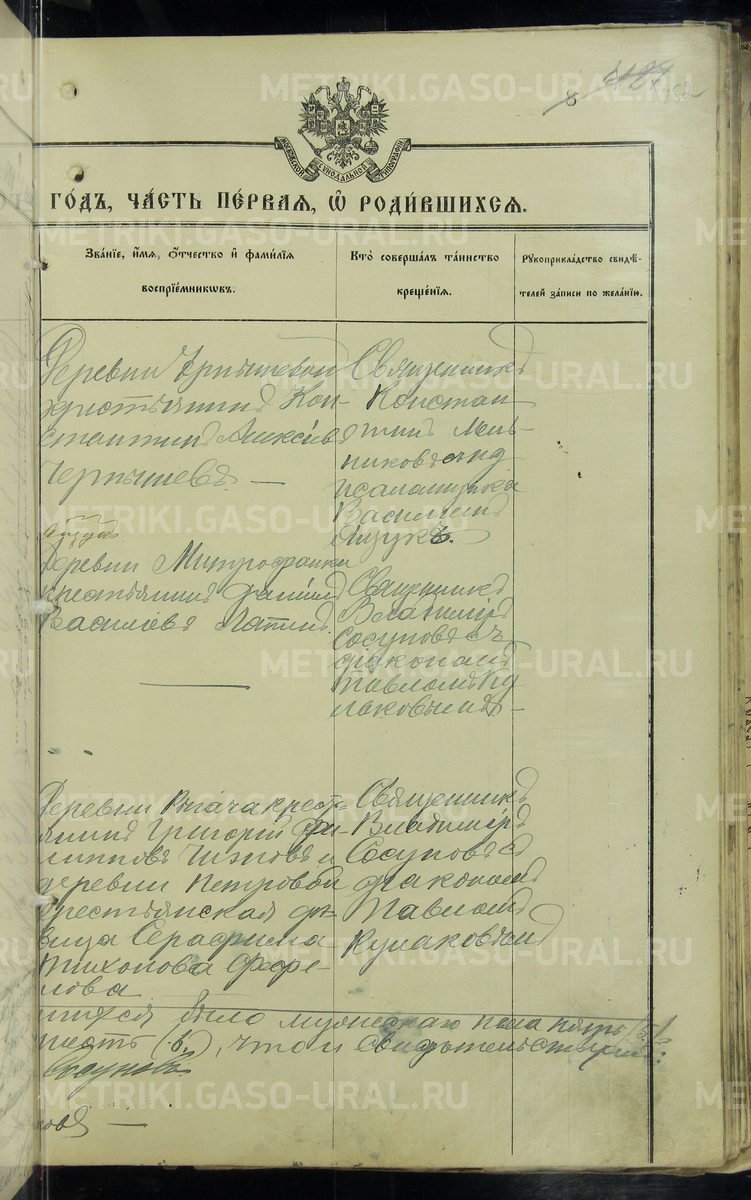 METRIKI.GASO-URAL.RU
8
МОСКОВСКОЙ СѴНОДАЛЬНОЙ ТИПОГРАФІИ
ГО́ДЪ, ЧА́СТЬ ПЕ́РВАЯ, Ѿ РОДИ́ВШИХСЯ.
Зва́нїе, и́мя, о́тчество и҆ фами́лїя
воспрїе́мникѡвъ.
Кто̀ соверша́лъ та́инство
креще́нїя.
Рꙋкоприкла́дство свидѣ́-
телей за́писи по жела́нїю.
Деревни Чернышевой
христьянинъ Кон-
стантинъ Алексѣевъ
Чернышевъ. —
Священникъ
Констан-
тинъ Мель-
никовъ съ и д
псаломщика
Василіемъ
Деревни Митрофанки
крестьянинъ
Василіевъ Лапинъ.
Священникъ
Владиміръ
Сосуновъ съ
діакономъ
Павломъ Ку
лаковымъ —
Деревни крестъ-
янинъ Григорій Фи-
липповъ Чизповъ и
деревни Петровой
крестьянская дѣ-
вица Серафима
Тихонова Фефе-
лова
Священникъ
Владиміръ
Сосуновъ съ
діакономъ
Павломъ
Кулаковымъ
было мужескаго пола пять (5),
шесть (6), что и свидѣтельствуемъ:
Сосуновъ
новъ —